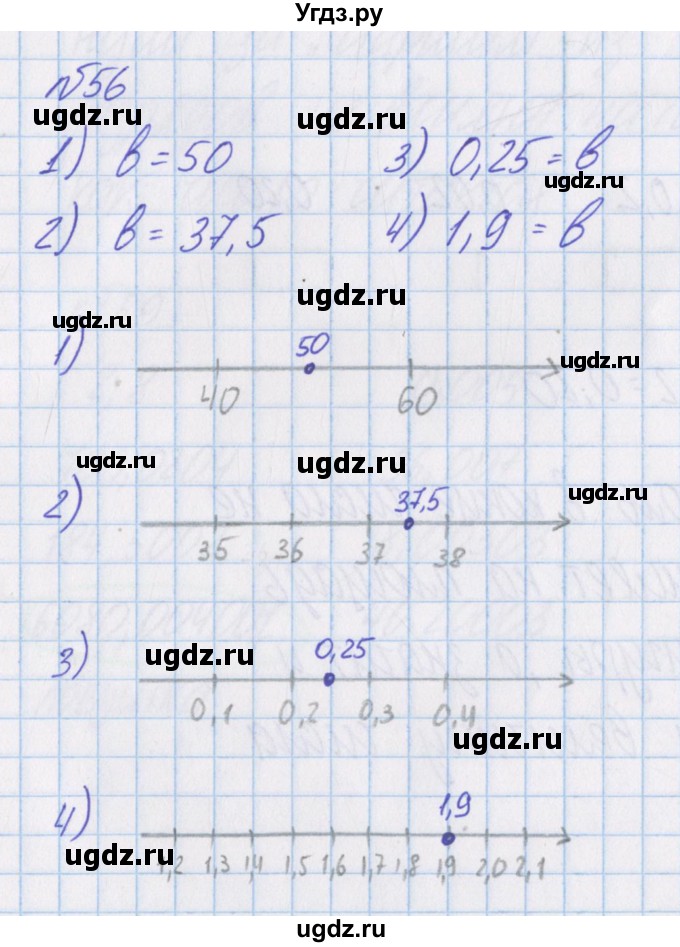 Угдз.ру
№56
ugdz.ru ugdz.ru
1) в = 50 3) 0,25 = в
ugdz.ru
2) в = 37,5 4) 1,9 = в
ugdz.ru
ugdz.ru
1) 50 ugdz.ru
40 60
ugdz.ru ugdz.ru
2) 37,5 ugdz.ru
35 36 37 38
3) ugdz.ru 0,25
0,1 0,2 0,3 0,4
ugdz.ru
4) 1,9
ugdz.ru
1,2 1,3 1,4 1,5 1,6 1,7 1,8 1,9 2,0 2,1
ugdz.ru